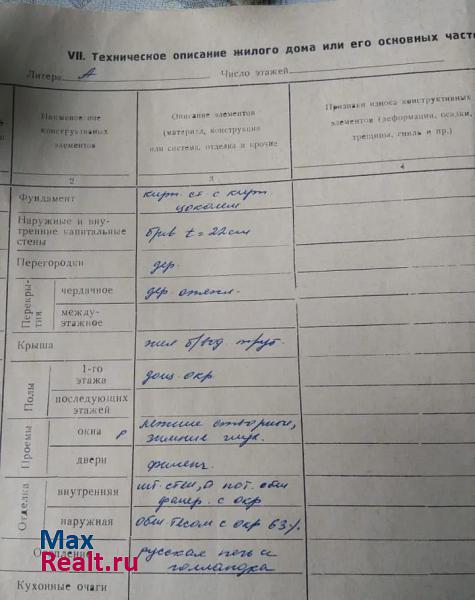 VII. Техническое описание жилого дома или его основных часте
Литер А Число этажей
Наименование конструктивных элементов
Описание элементов (материал, конструкция или система, отделка и прочие
Признаки износа конструктивных элементов (деформации, осадки, трещины, гниль и пр.)
2 3 4
Фундамент кирп. ст. с кирп. цоколем
Наружные и внутренние капитальные стены брев t = 22 см
Перегородки дер.
Перекрытия
чердачное дер. отепл.
междуэтажное
Крыша
Полы
1-го этажа дощ. окр.
последующих этажей
Проемы
окна летние створные, зимние глух.
двери филенч.
Отделка
внутренняя
фанер. с окр
наружная обш. тесом с окр 63%
русская печь и голландка
Кухонные очаги
Max
Realt.ru